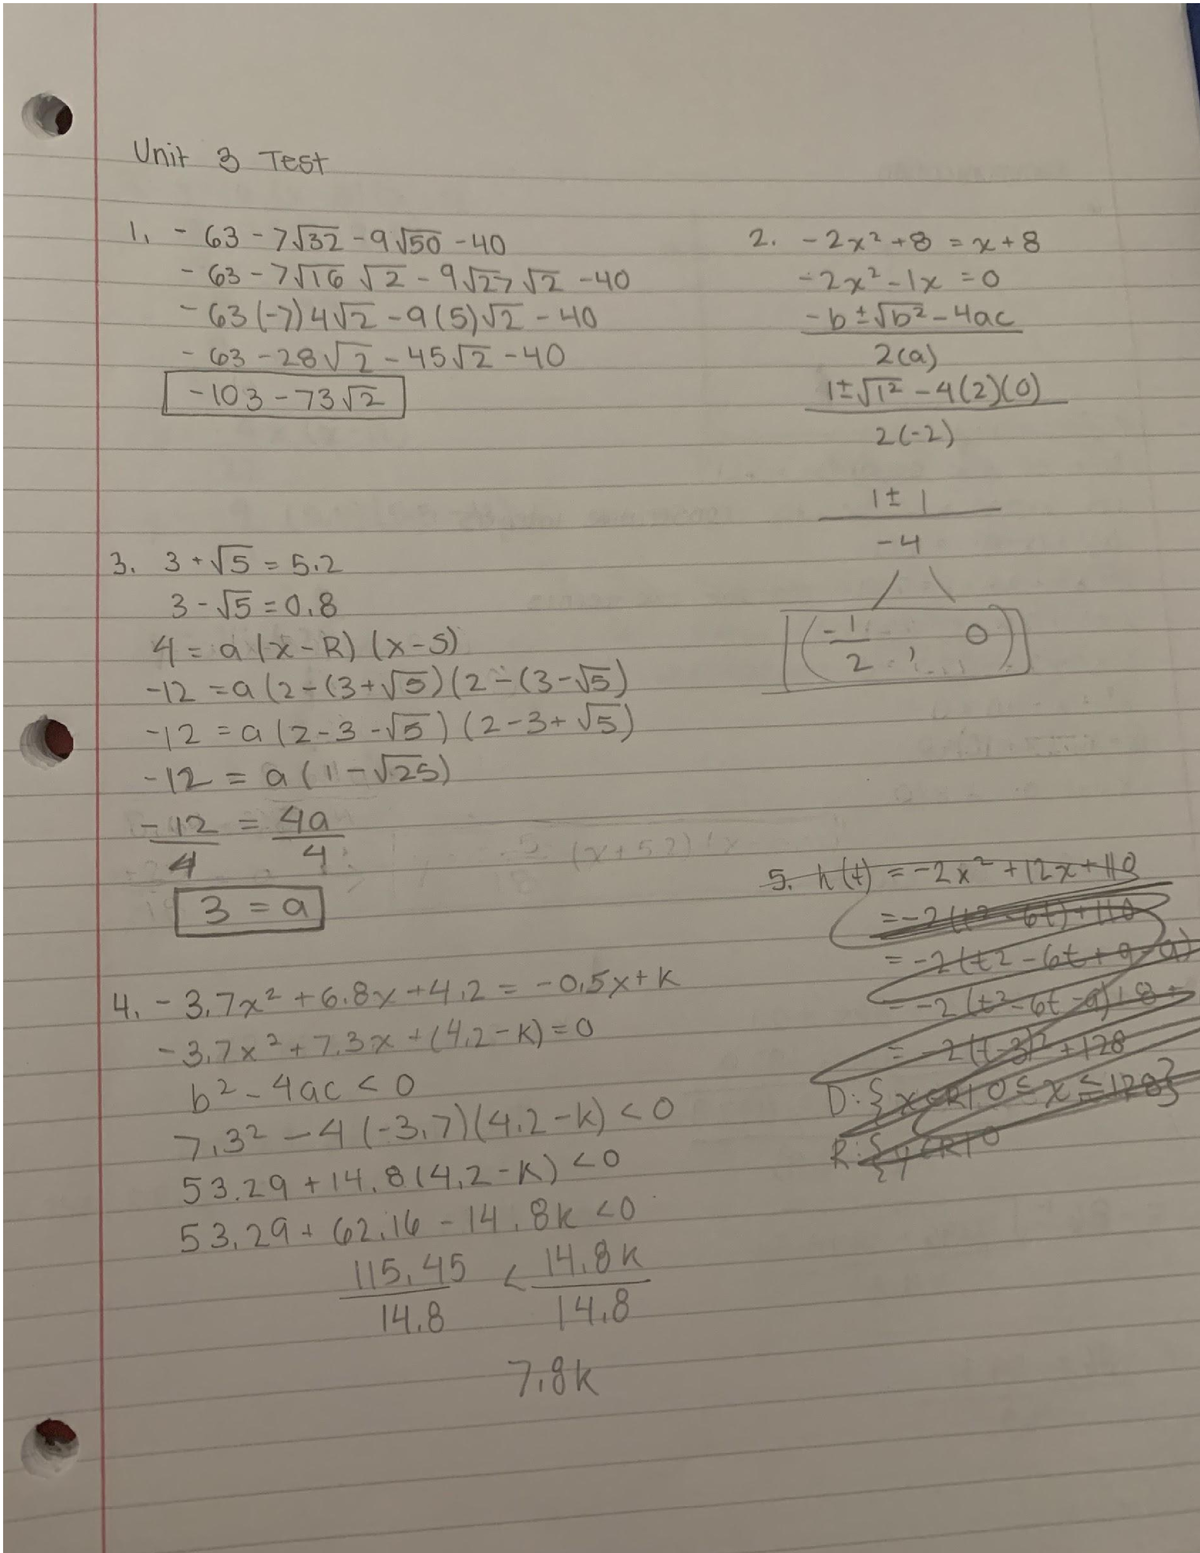 Unit 3 Test
1. - 63 - 7√32 - 9√50 - 40
- 63 - 7√16 √2 - 9√27√2 - 40
- 63 (-7) 4√2 - 9(5)√2 - 40
- 63 - 28√2 - 45√2 - 40
-103 - 73√2
2. -2x² + 8 = x + 8
-2x² - 1x = 0
-b ± √b² - 4ac
2(a)
1 ± √1² - 4(2)(0)
2(-2)
1 ± 1
-4
(-1/2, 0)
3. 3 + √5 = 5.2
3 - √5 = 0.8
4 = a(x - R)(x - S)
-12 = a(2 - (3 + √5)(2 - (3 - √5)
-12 = a(2 - 3 - √5)(2 - 3 + √5)
-12 = a(1 - √25)
-12 = 4a
4 4
3 = a
4. -3.7x² + 6.8x + 4.2 = -0.5x + k
-3.7x² + 7.3x + (4.2 - k) = 0
b² - 4ac < 0
7.3² - 4(-3.7)(4.2 - k) < 0
53.29 + 14.8(4.2 - k) < 0
53.29 + 62.16 - 14.8k < 0
115.45 < 14.8k
14.8 14.8
7.8k
5. h(t) = -2x² + 12x + 110
= -2(t² - 6t) + 110
= -2(t2 - 6t + 9 - 9)
= -2(t² - 6t - 9) + 8 +
= -2(t - 3)² + 128
D: {x∈R | 0 ≤ x ≤ 128}
R: {y∈R | 0